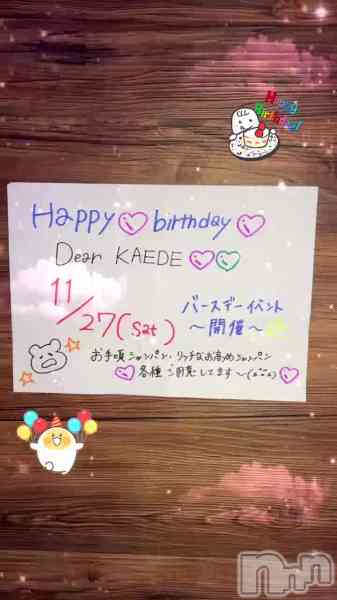 Happy Birthday!
Happy♡birthday♡
Dear KAEDE♡♡
11/27(sat)
バースデーイベント
～開催～
お手頃シャンパン、リッチなお高めシャンパン
各種ご用意してます～
nnn